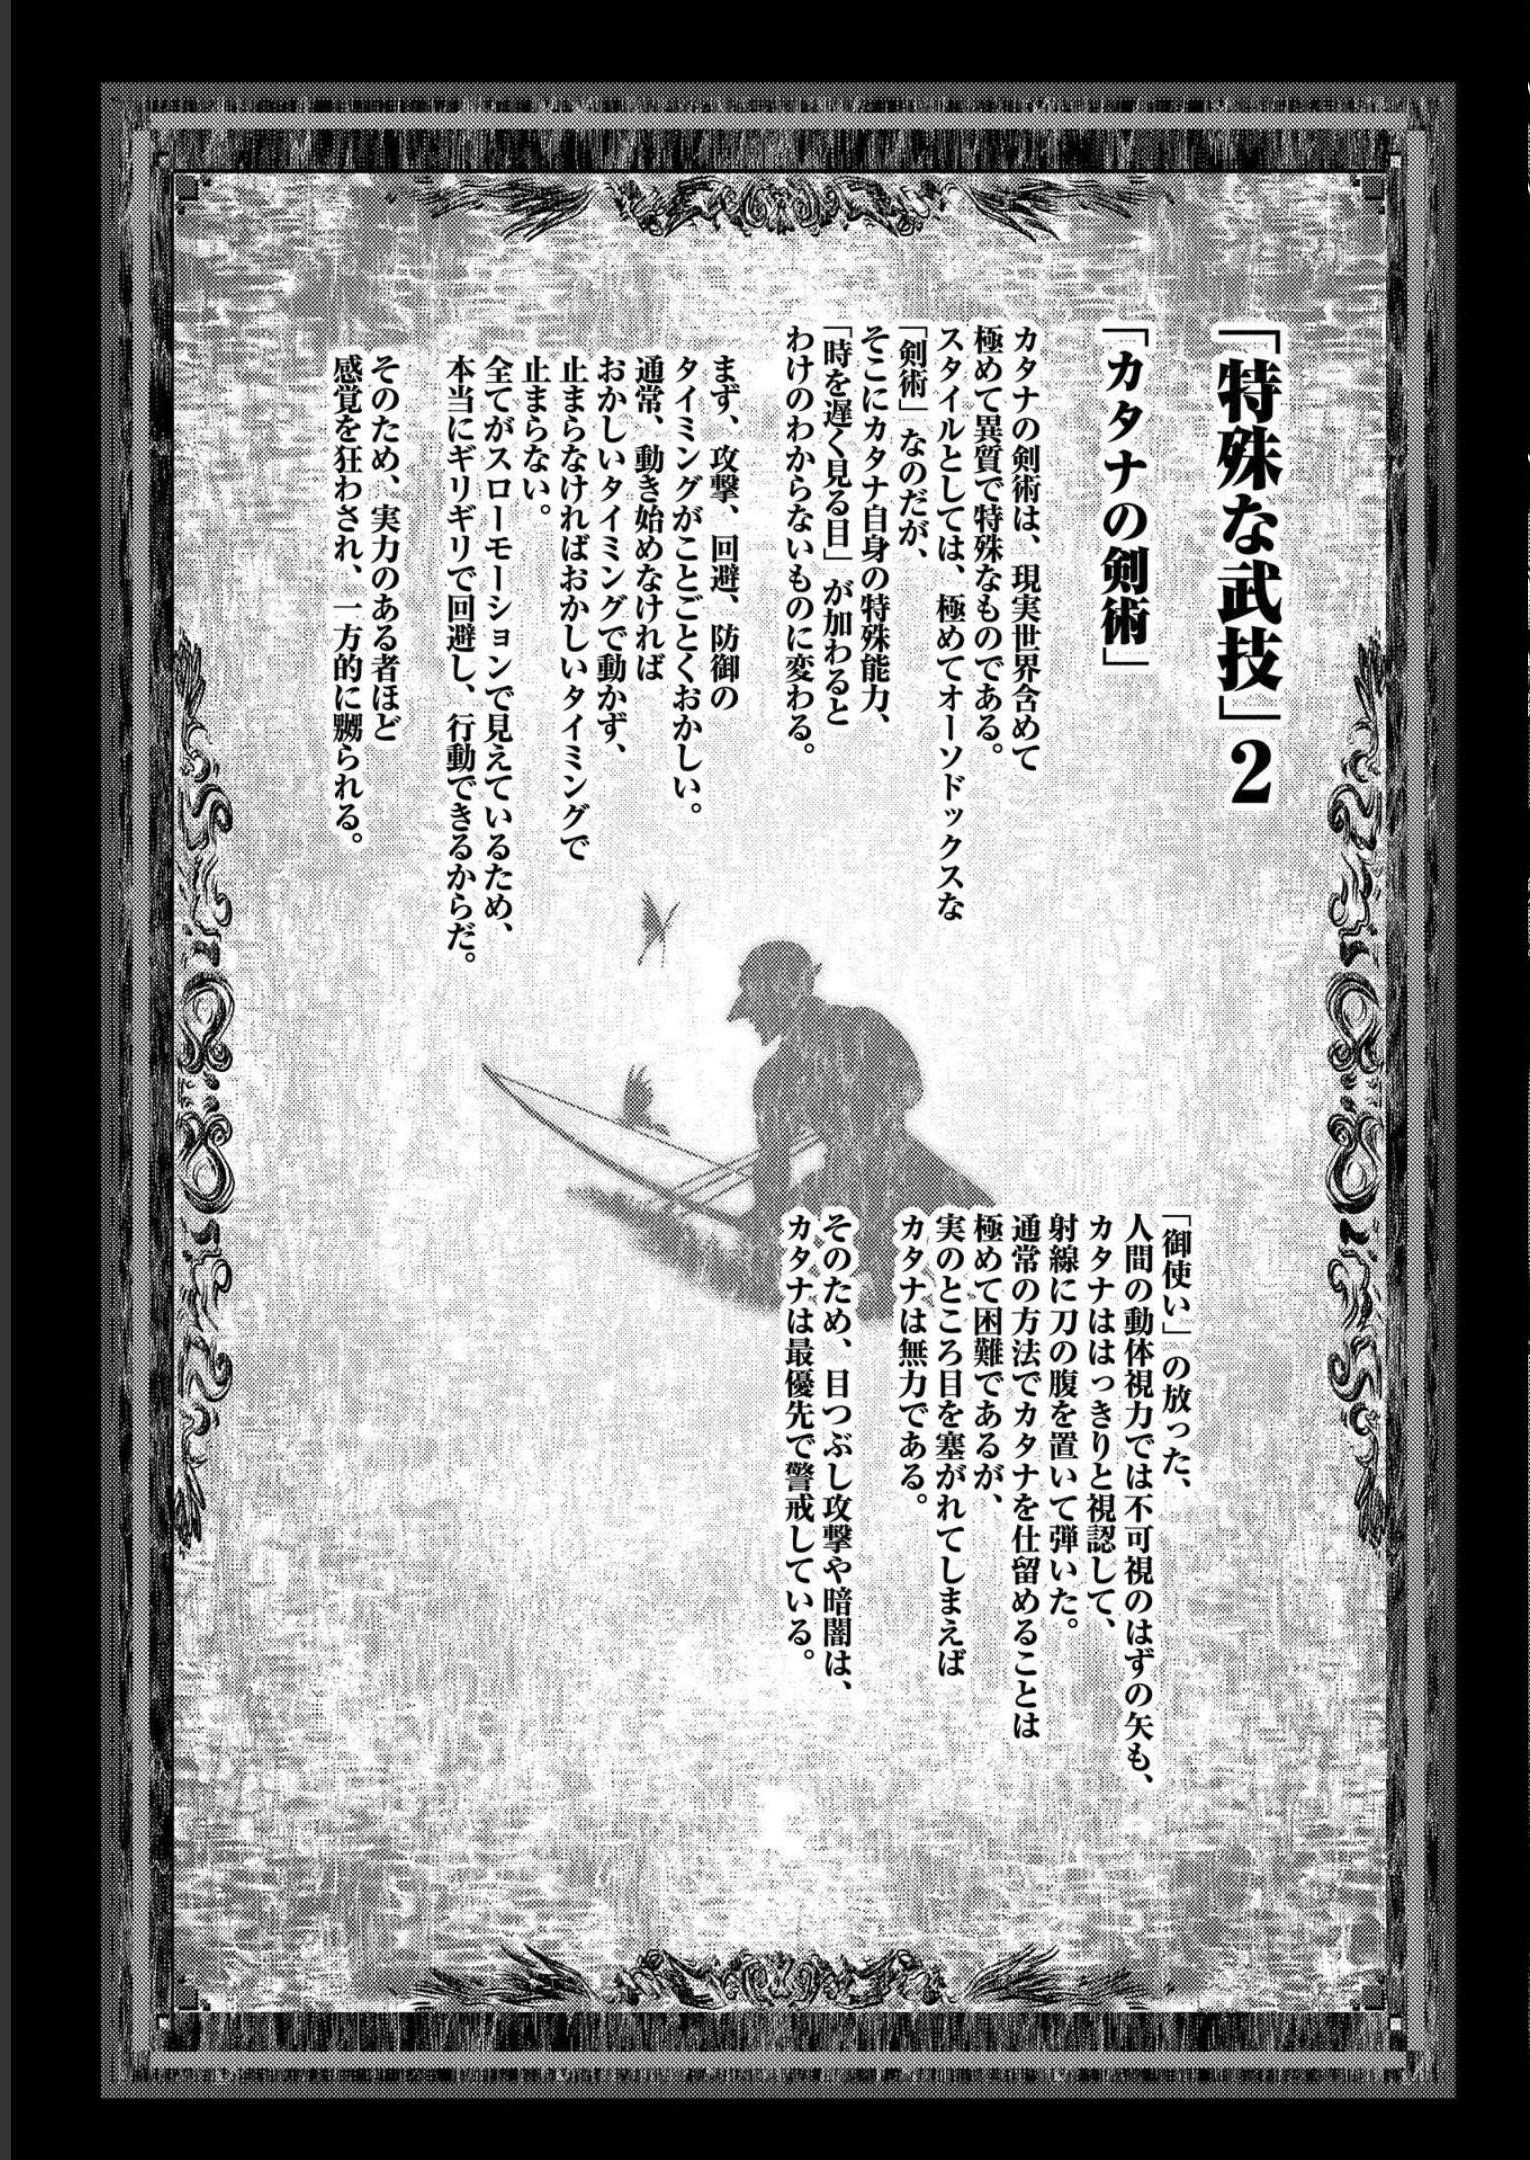 「特殊な武技」2
「カタナの剣術」
カタナの剣術は、現実世界含めて
極めて異質で特殊なものである。
スタイルとしては、極めてオーソドックスな
「剣術」なのだが、
そこにカタナ自身の特殊能力、
「時を遅く見る目」が加わると
わけのわからないものに変わる。
まず、攻撃、回避、防御の
タイミングがことごとくおかしい。
通常、動き始めなければ
おかしいタイミングで動かず、
止まらなければおかしいタイミングで
止まらない。
全てがスローモーションで見えているため、
本当にギリギリで回避し、行動できるからだ。
そのため、実力のある者ほど
感覚を狂わされ、一方的に嬲られる。
「御使い」の放った、
人間の動体視力では不可視のはずの矢も、
カタナははっきりと視認して、
射線に刀の腹を置いて弾いた。
通常の方法でカタナを仕留めることは
極めて困難であるが、
実のところ目を塞がれてしまえば
カタナは無力である。
そのため、目つぶし攻撃や暗闇は、
カタナは最優先で警戒している。